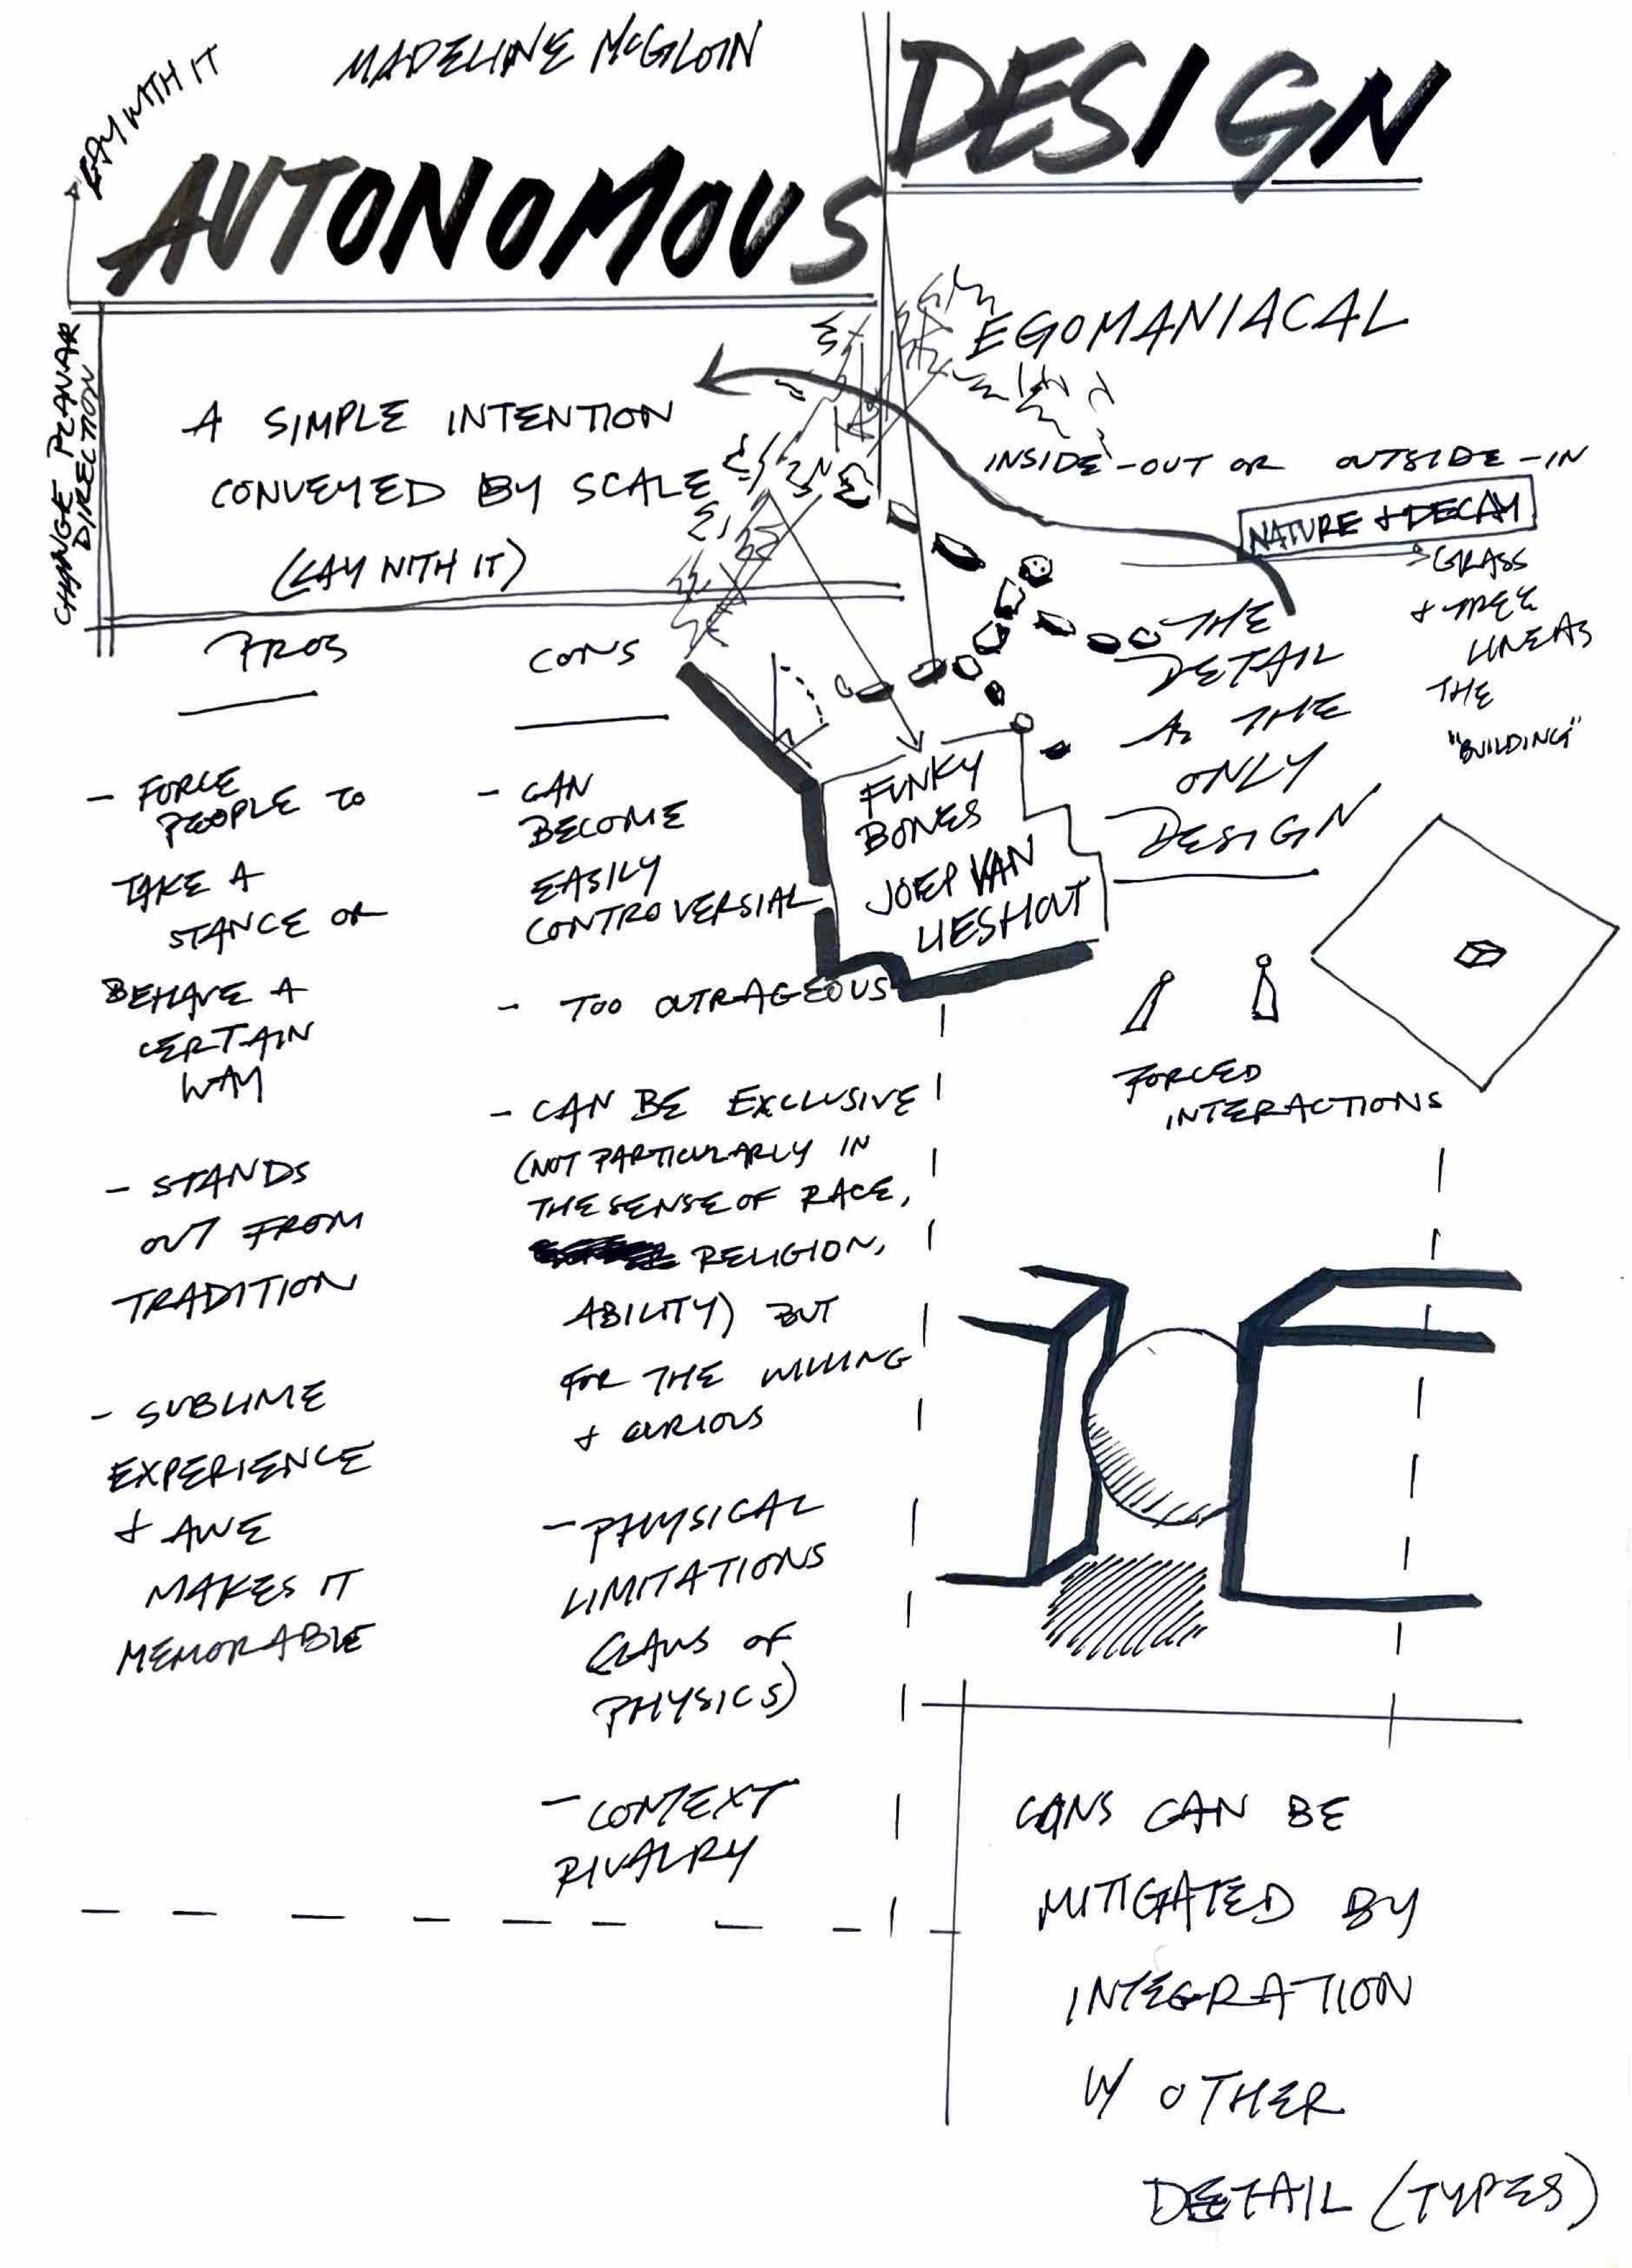 MADELINE McGLOIN
LAY WITH IT
AUTONOMOUS
DESIGN
CHANGE PLANAR
DIRECTION
A SIMPLE INTENTION
CONVEYED BY SCALE
(LAY WITH IT)
EGOMANIACAL
INSIDE-OUT OR OUTSIDE-IN
NATURE & DECAY
GRASS
& TREE
LINE AS
THE
"BUILDING"
THE
DETAIL
AS THE
ONLY
DESIGN
FUNKY
BONES
JOEP VAN
LIESHOUT
FORCED
INTERACTIONS
PROS
- FORCE
PEOPLE TO
TAKE A
STANCE OR
BEHAVE A
CERTAIN
WAY
- STANDS
OUT FROM
TRADITION
- SUBLIME
EXPERIENCE
& AWE
MAKES IT
MEMORABLE
CONS
- CAN
BECOME
EASILY
CONTROVERSIAL
- TOO OUTRAGEOUS
- CAN BE EXCLUSIVE
(NOT PARTICULARLY IN
THE SENSE OF RACE,
RELIGION,
ABILITY) BUT
FOR THE WILLING
& CURIOUS
- PHYSICAL
LIMITATIONS
(LAWS OF
PHYSICS)
- CONTEXT
RIVALRY
CONS CAN BE
MITIGATED BY
INTEGRATION
W/ OTHER
DETAIL (TYPES)